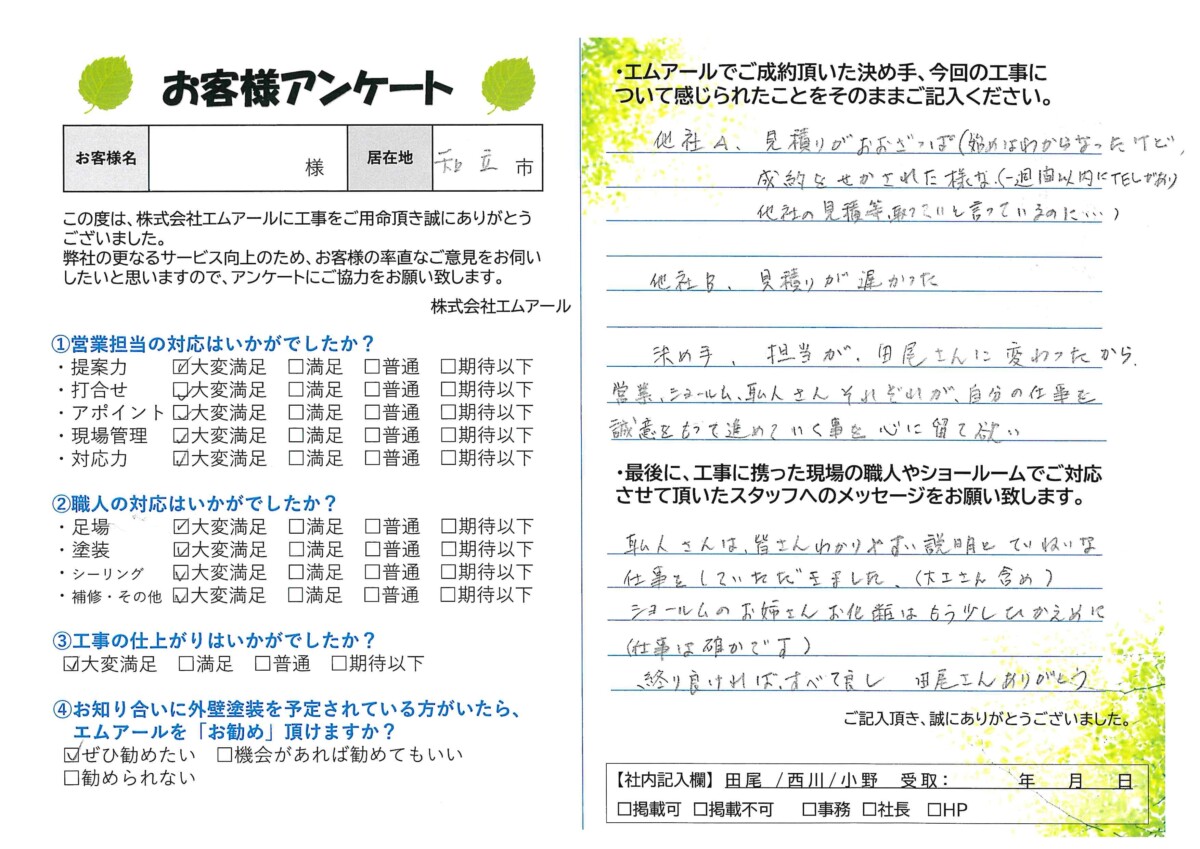 お客様アンケート
お客様名 様 居在地 知立 市
この度は、株式会社エムアールに工事をご用命頂き誠にありがとう
ございました。
弊社の更なるサービス向上のため、お客様の率直なご意見をお伺い
したいと思いますので、アンケートにご協力をお願い致します。
株式会社エムアール
①営業担当の対応はいかがでしたか？
・提案力 ☑大変満足 □満足 □普通 □期待以下
・打合せ ☑大変満足 □満足 □普通 □期待以下
・アポイント ☑大変満足 □満足 □普通 □期待以下
・現場管理 ☑大変満足 □満足 □普通 □期待以下
・対応力 ☑大変満足 □満足 □普通 □期待以下
②職人の対応はいかがでしたか？
・足場 ☑大変満足 □満足 □普通 □期待以下
・塗装 ☑大変満足 □満足 □普通 □期待以下
・シーリング ☑大変満足 □満足 □普通 □期待以下
・補修・その他 ☑大変満足 □満足 □普通 □期待以下
③工事の仕上がりはいかがでしたか？
☑大変満足 □満足 □普通 □期待以下
④お知り合いに外壁塗装を予定されている方がいたら、
エムアールを「お勧め」頂けますか？
☑ぜひ勧めたい □機会があれば勧めてもいい
□勧められない
・エムアールでご成約頂いた決め手、今回の工事に
ついて感じられたことをそのままご記入ください。
他社A、見積りがおおざっぱ(始めはわからなったけど、
成約をせかされた様な、(一週間以内にTELがあり
他社の見積等、取っていと言っているのに…)
他社B、見積りが遅かった
決め手、担当が、田尾さんに変わったから、
営業、ショールム、職人さんそれぞれが、自分の仕事を
誠意をもって進めていく事を心に留て欲い
・最後に、工事に携った現場の職人やショールームでご対応
させて頂いたスタッフへのメッセージをお願い致します。
職人さんは、皆さんわかりやすい説明とていねいな
仕事をしていただきました、(大工さん含め)
ショールムのお姉さんお化粧はもう少しひかえめに
(仕事は確かです)
終り良ければ、すべて良し 田尾さんありがとう
ご記入頂き、誠にありがとうございました。
【社内記入欄】田尾 /西川/小野 受取： 年 月 日
□掲載可 □掲載不可 □事務 □社長 □HP